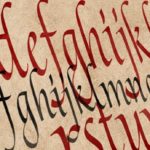 defghijk
fghijklmno
rstuv